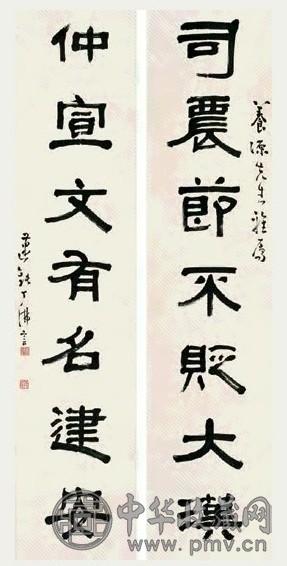 養源先生雅屬
司農節不貶大漢
仲宣文有名建安
邁鈍丁佛言
中华收藏网
www.pmv.cn